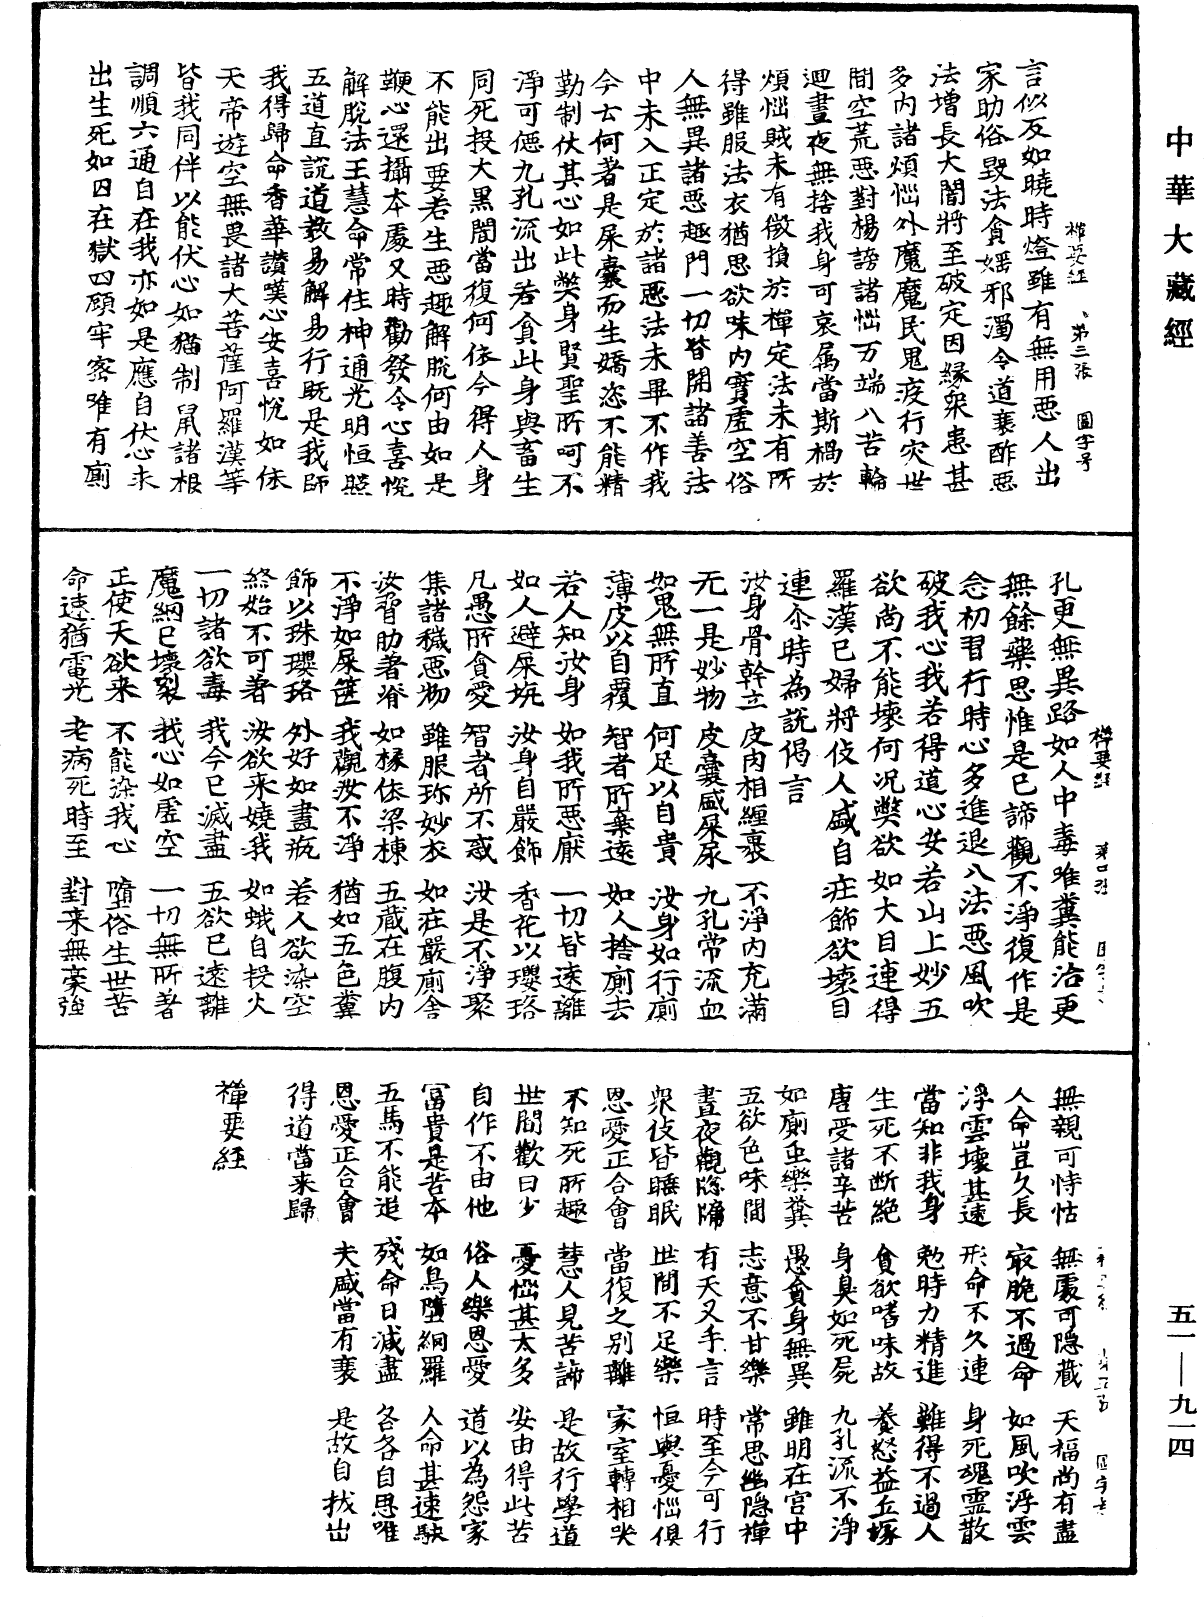 中華大藏經
禪要經 第三張 圓字号
言似反如曉時燈雖有無用惡人出
家助俗毀法貪婬邪濁令道衰酢惡
法增長大闇將至破定因緣衆患甚
多內諸煩惱外魔魔民鬼疫行灾世
間空荒惡對楊謗諸惱万端八苦輪
迴晝夜無捨我身可哀属當斯禍於
煩惱賊未有徵損於禪定法未有所
得雖服法衣猶思欲味內實虛空俗
人無異諸惡趣門一切皆開諸善法
中未入正定於諸惡法未畢不作我
今云何者是屎囊而生憍恣不能精
勤制伏其心如此弊身賢聖所呵不
淨可僫九孔流出若貪此身與畜生
同死投大黑闇當復何依今得人身
不能出要若生惡趣解脫何由如是
鞭心還攝本處又時勸發令心喜悅
解脫法王慧命常住神通光明恒照
五道直說道教易解易行既是我師
我得歸命香華讚嘆心安喜悅如依
天帝遊空無畏諸大菩薩阿羅漢等
皆我同伴以能伏心如猫制鼠諸根
調順六通自在我亦如是應自伏心求
出生死如囚在獄四顧牢密唯有廁
禪要經 第四張
孔更無異路如人中毒唯糞能治更
無餘藥思惟是已諦觀不淨復作是
念初習行時心多進退八法惡風吹
破我心我若得道心安若山上妙五
欲尚不能壞何況弊欲如大目連得
羅漢已婦將伎人盛自莊飾欲壞目
連尒時為說偈言
汝身骨幹立 皮肉相纏裹 不淨內充滿
无一是妙物 皮囊盛屎尿 九孔常流血
如鬼無所直 何足以自貴 汝身如行廁
薄皮以自覆 智者所棄遠 如人捨廁去
若人知汝身 如我所惡厭 一切皆遠離
如人避屎坑 汝身自嚴飾 香花以瓔珞
凡愚所貪愛 智者所不惑 汝是不淨聚
集諸穢惡物 雖服珎妙衣 如莊嚴廁舍
汝脅肋著脊 如椽依梁棟 五藏在腹內
不淨如屎篋 我觀汝不淨 猶如五色糞
飾以珠瓔珞 外好如畫瓶 若人欲染空
終始不可著 汝欲来嬈我 如蛾自投火
一切諸欲毒 我今已滅盡 五欲已遠離
魔網已壞裂 我心如虛空 一切無所著
正使天欲来 不能染我心 墮俗生世苦
命速猶電光 老病死時至 對来無豪強
無親可恃怙 無處可隱藏 天福尚有盡
人命豈久長 㝡脆不過命 如風吹浮雲
浮雲壞甚速 形命不久連 身死魂靈散
當知非我身 勉時力精進 難得不過人
生死不斷絕 貪欲嗜味故 養怒益丘塚
唐受諸辛苦 身臭如死屍 九孔流不淨
如廁虫樂糞 愚貪身無異 雖明在宫中
五欲色味間 志意不甘樂 常思幽隱禪
晝夜觀隂隮 有天叉手言 時至今可行
衆伎皆睡眠 世間不足樂 恒與憂惱俱
恩愛正合會 當復之别離 家室轉相哭
不知死所趣 慧人見苦諦 是故行學道
世間歡日少 憂惱甚太多 安由得此苦
自作不由他 俗人樂恩愛 道以為怨家
冨貴是苦本 如鳥墮網羅 人命甚速駃
五馬不能追 殘命日減盡 各各自思唯
恩愛正合會 夫盛當有衰 是故自拔出
得道當来歸
禪要經
五一—九一四